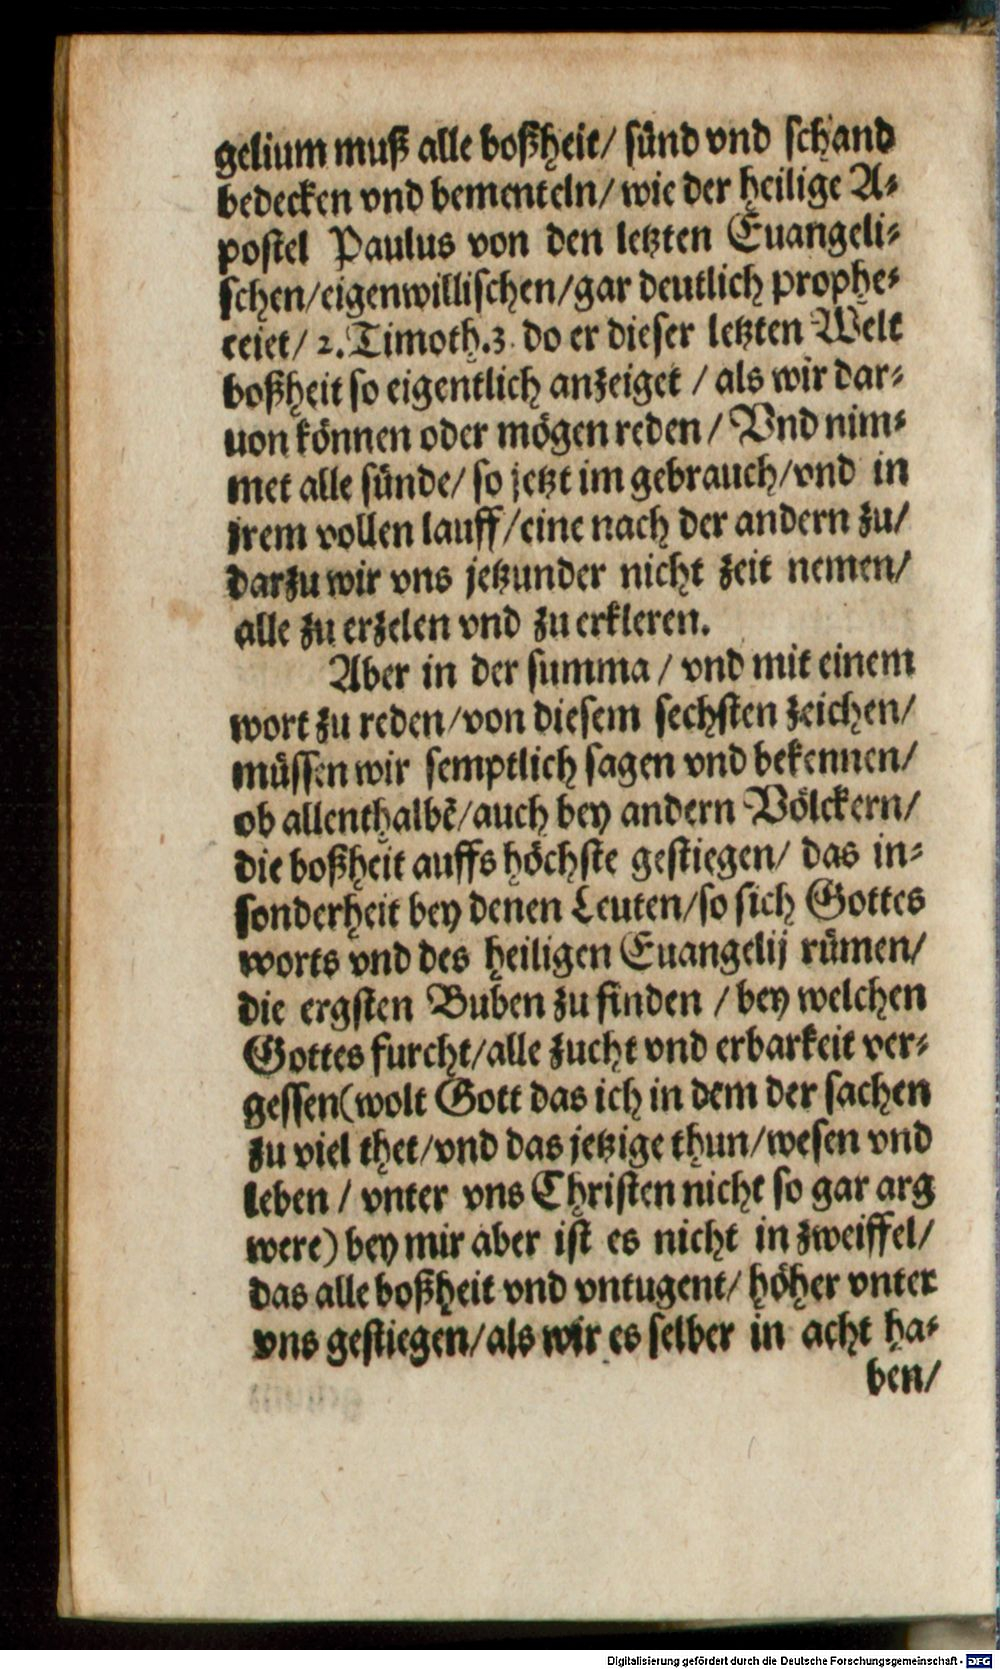 gelium muß alle boßheit/ sünd vnd schand
bedecken vnd bementeln/ wie der heilige A⸗
postel Paulus von den letzten Euangeli⸗
schen/eigenwillischen/gar deutlich prophe⸗
ceiet/ 2. Timoth.3. do er dieser letzten Welt
boßheit so eigentlich anzeiget / als wir dar⸗
uon können oder mögen reden/ Vnd nim⸗
met alle sünde/ so jetzt im gebrauch/vnd in
jrem vollen lauff/eine nach der andern zu/
darzu wir vns jetzunder nicht zeit nemen/
alle zu erzelen vnd zu erkleren.
Aber in der summa / vnd mit einem
wort zu reden/von diesem sechsten zeichen/
müssen wir semptlich sagen vnd bekennen/
ob allenthalbē/auch bey andern Völckern/
die boßheit auffs höchste gestiegen/ das in⸗
sonderheit bey denen Leuten/so sich Gottes
worts vnd des heiligen Euangelij rümen/
die ergsten Buben zu finden / bey welchen
Gottes furcht/alle zucht vnd erbarkeit ver⸗
gessen(wolt Gott das ich in dem der sachen
zu viel thet/vnd das jetzige thun/wesen vnd
leben / vnter vns Christen nicht so gar arg
were) bey mir aber ist es nicht in zweiffel/
das alle boßheit vnd vntugent/ höher vnter
vns gestiegen/als wir es selber in acht ha⸗
ben/
Digitalisierung gefördert durch die Deutsche Forschungsgemeinschaft - DFG